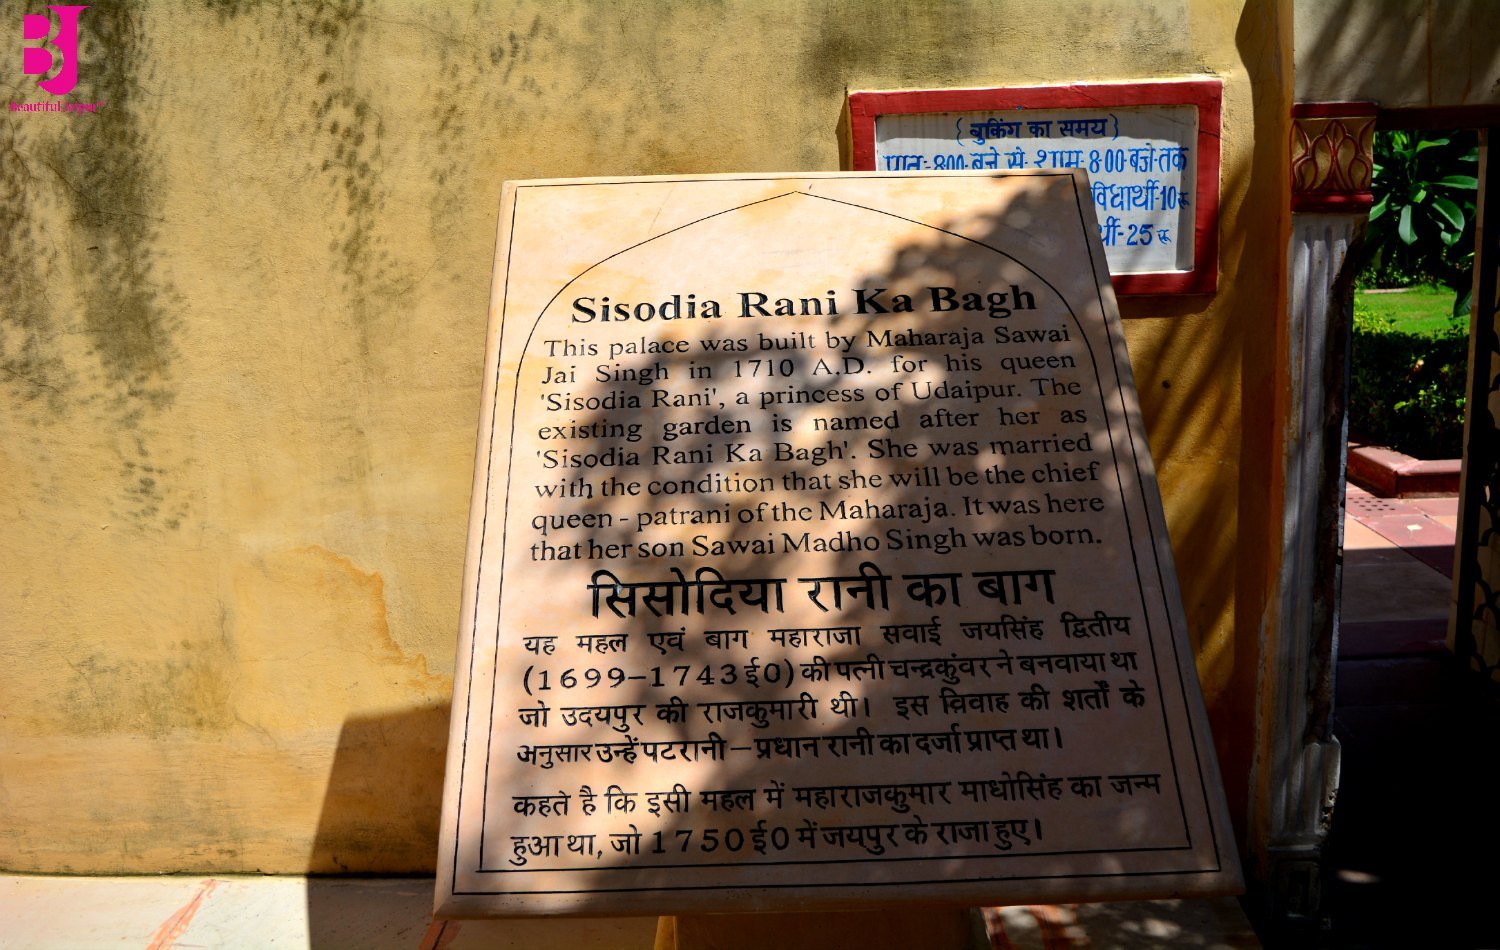 BJ
Beautiful Jaipur
{ बुकिंग का समय }
प्रातः-8:00-बजे से-शाम-8:00 बजे-तक
विधार्थी-10रू
र्थी-25 रू
Sisodia Rani Ka Bagh
This palace was built by Maharaja Sawai
Jai Singh in 1710 A.D. for his queen
'Sisodia Rani', a princess of Udaipur. The
existing garden is named after her as
'Sisodia Rani Ka Bagh'. She was married
with the condition that she will be the chief
queen - patrani of the Maharaja. It was here
that her son Sawai Madho Singh was born.
सिसोदिया रानी का बाग
यह महल एवं बाग महाराजा सवाई जयसिंह द्वितीय
(1699–1743ई0) की पत्नी चन्द्रकुंवर ने बनवाया था
जो उदयपुर की राजकुमारी थी। इस विवाह की शर्तों के
अनुसार उन्हें पटरानी – प्रधान रानी का दर्जा प्राप्त था।
कहते है कि इसी महल में महाराजकुमार माधोसिंह का जन्म
हुआ था, जो 1750ई0 में जयपुर के राजा हुए।